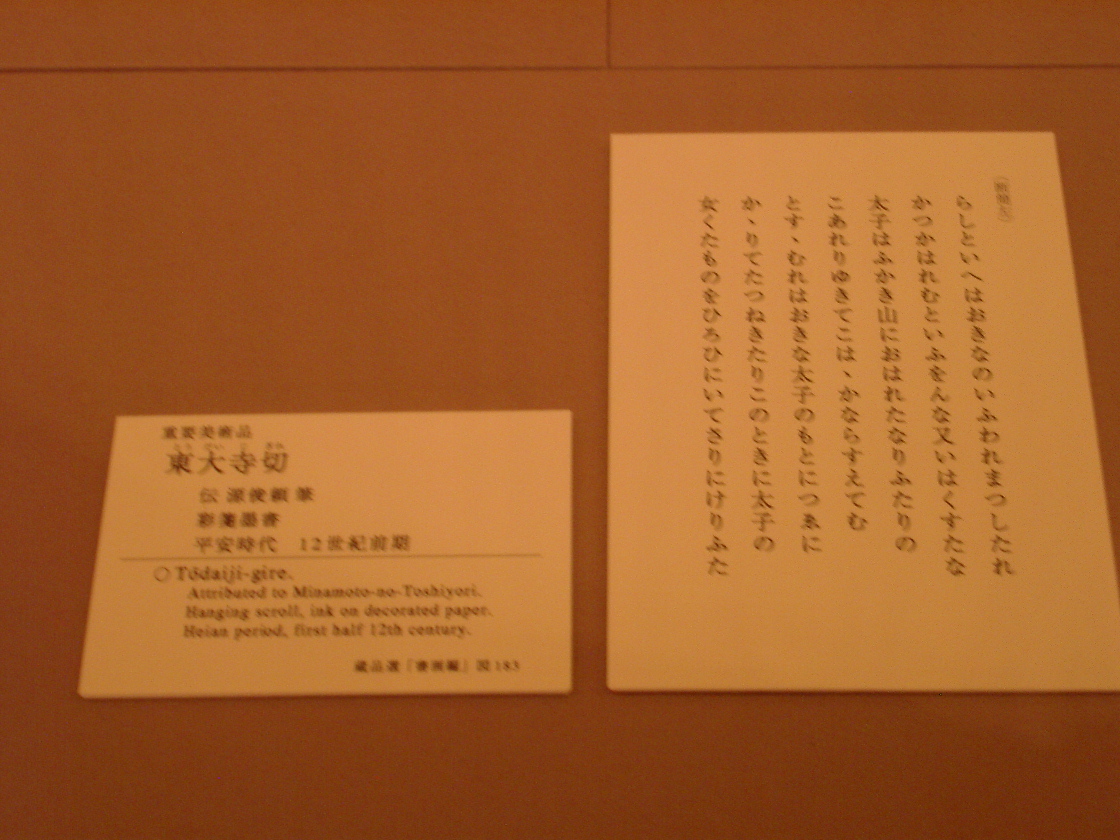 重要美術品
東大寺切
伝 源俊頼 筆
彩箋墨書
平安時代 12世紀前期
○ Tōdaiji-gire.
Attributed to Minamoto-no-Toshiyori.
Hanging scroll, ink on decorated paper.
Heian period, first half 12th century.
蔵品選「書画編」図183
らしといへはおきなのいふわれまつしたれ
かつかはれむといふをんな又いはくすたな
太子はふかき山におはれたなりふたりの
こあれりゆきてこは、かならすえてむ
とす、むれはおきな太子のもとにつゑに
か、りてたつねきたりこのときに太子の
女くたものをひろひにいてさりにけりふた